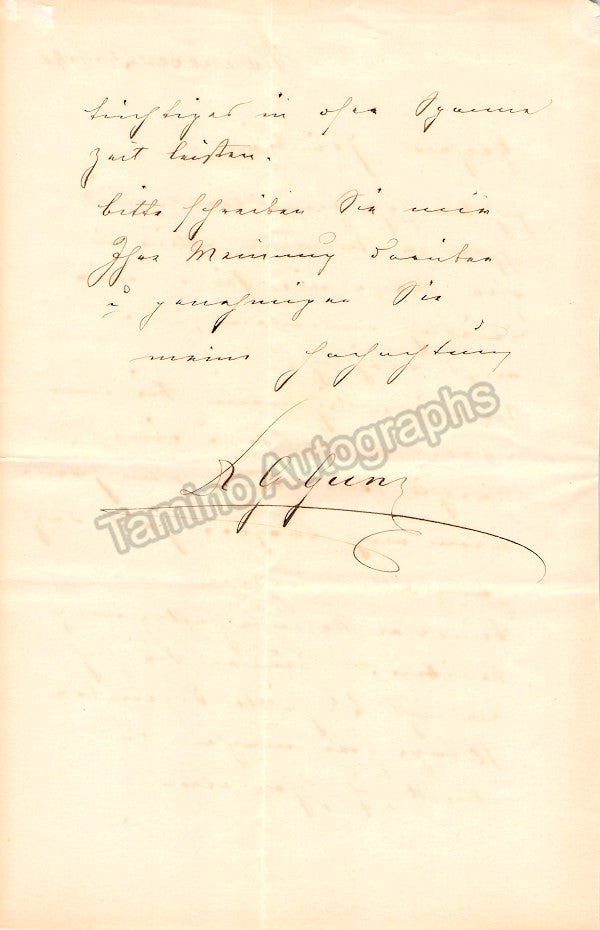 tüchtiges in Spanne
Zeit leisten.
bitte schreiben Sie mir
Ihre Meinung darüber
u genehmigen Sie
meine Hochachtung
Dr G Gunz
Tamino Autographs